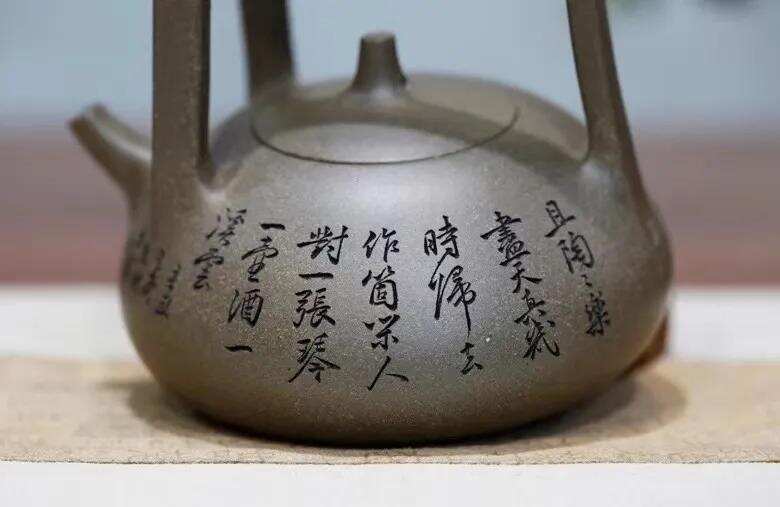 且陶々樂
盡天真幾
時歸去
作箇閑人
對一張琴
一壺酒一
溪雲